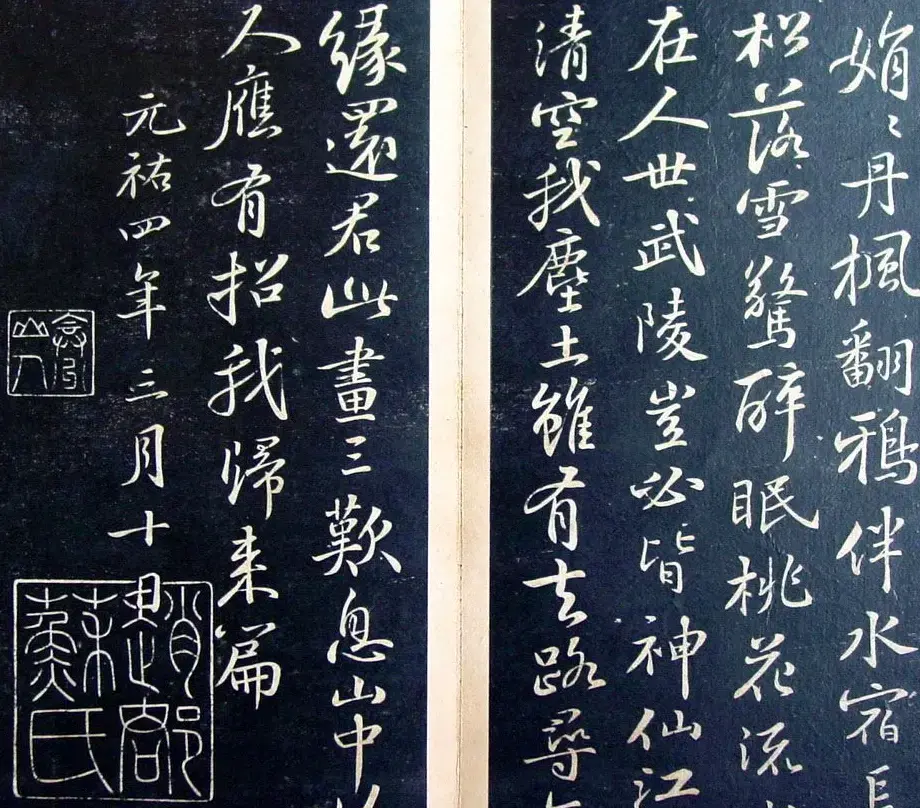 娟〻丹楓翻鴉伴水宿長
松落雪驚醉眠桃花流
在人世武陵豈必皆神仙江
清空我塵土雖有去路尋
緣還君此畫三歎息山中
人應有招我歸來篇
元祐四年三月十日
趙郡蘇氏